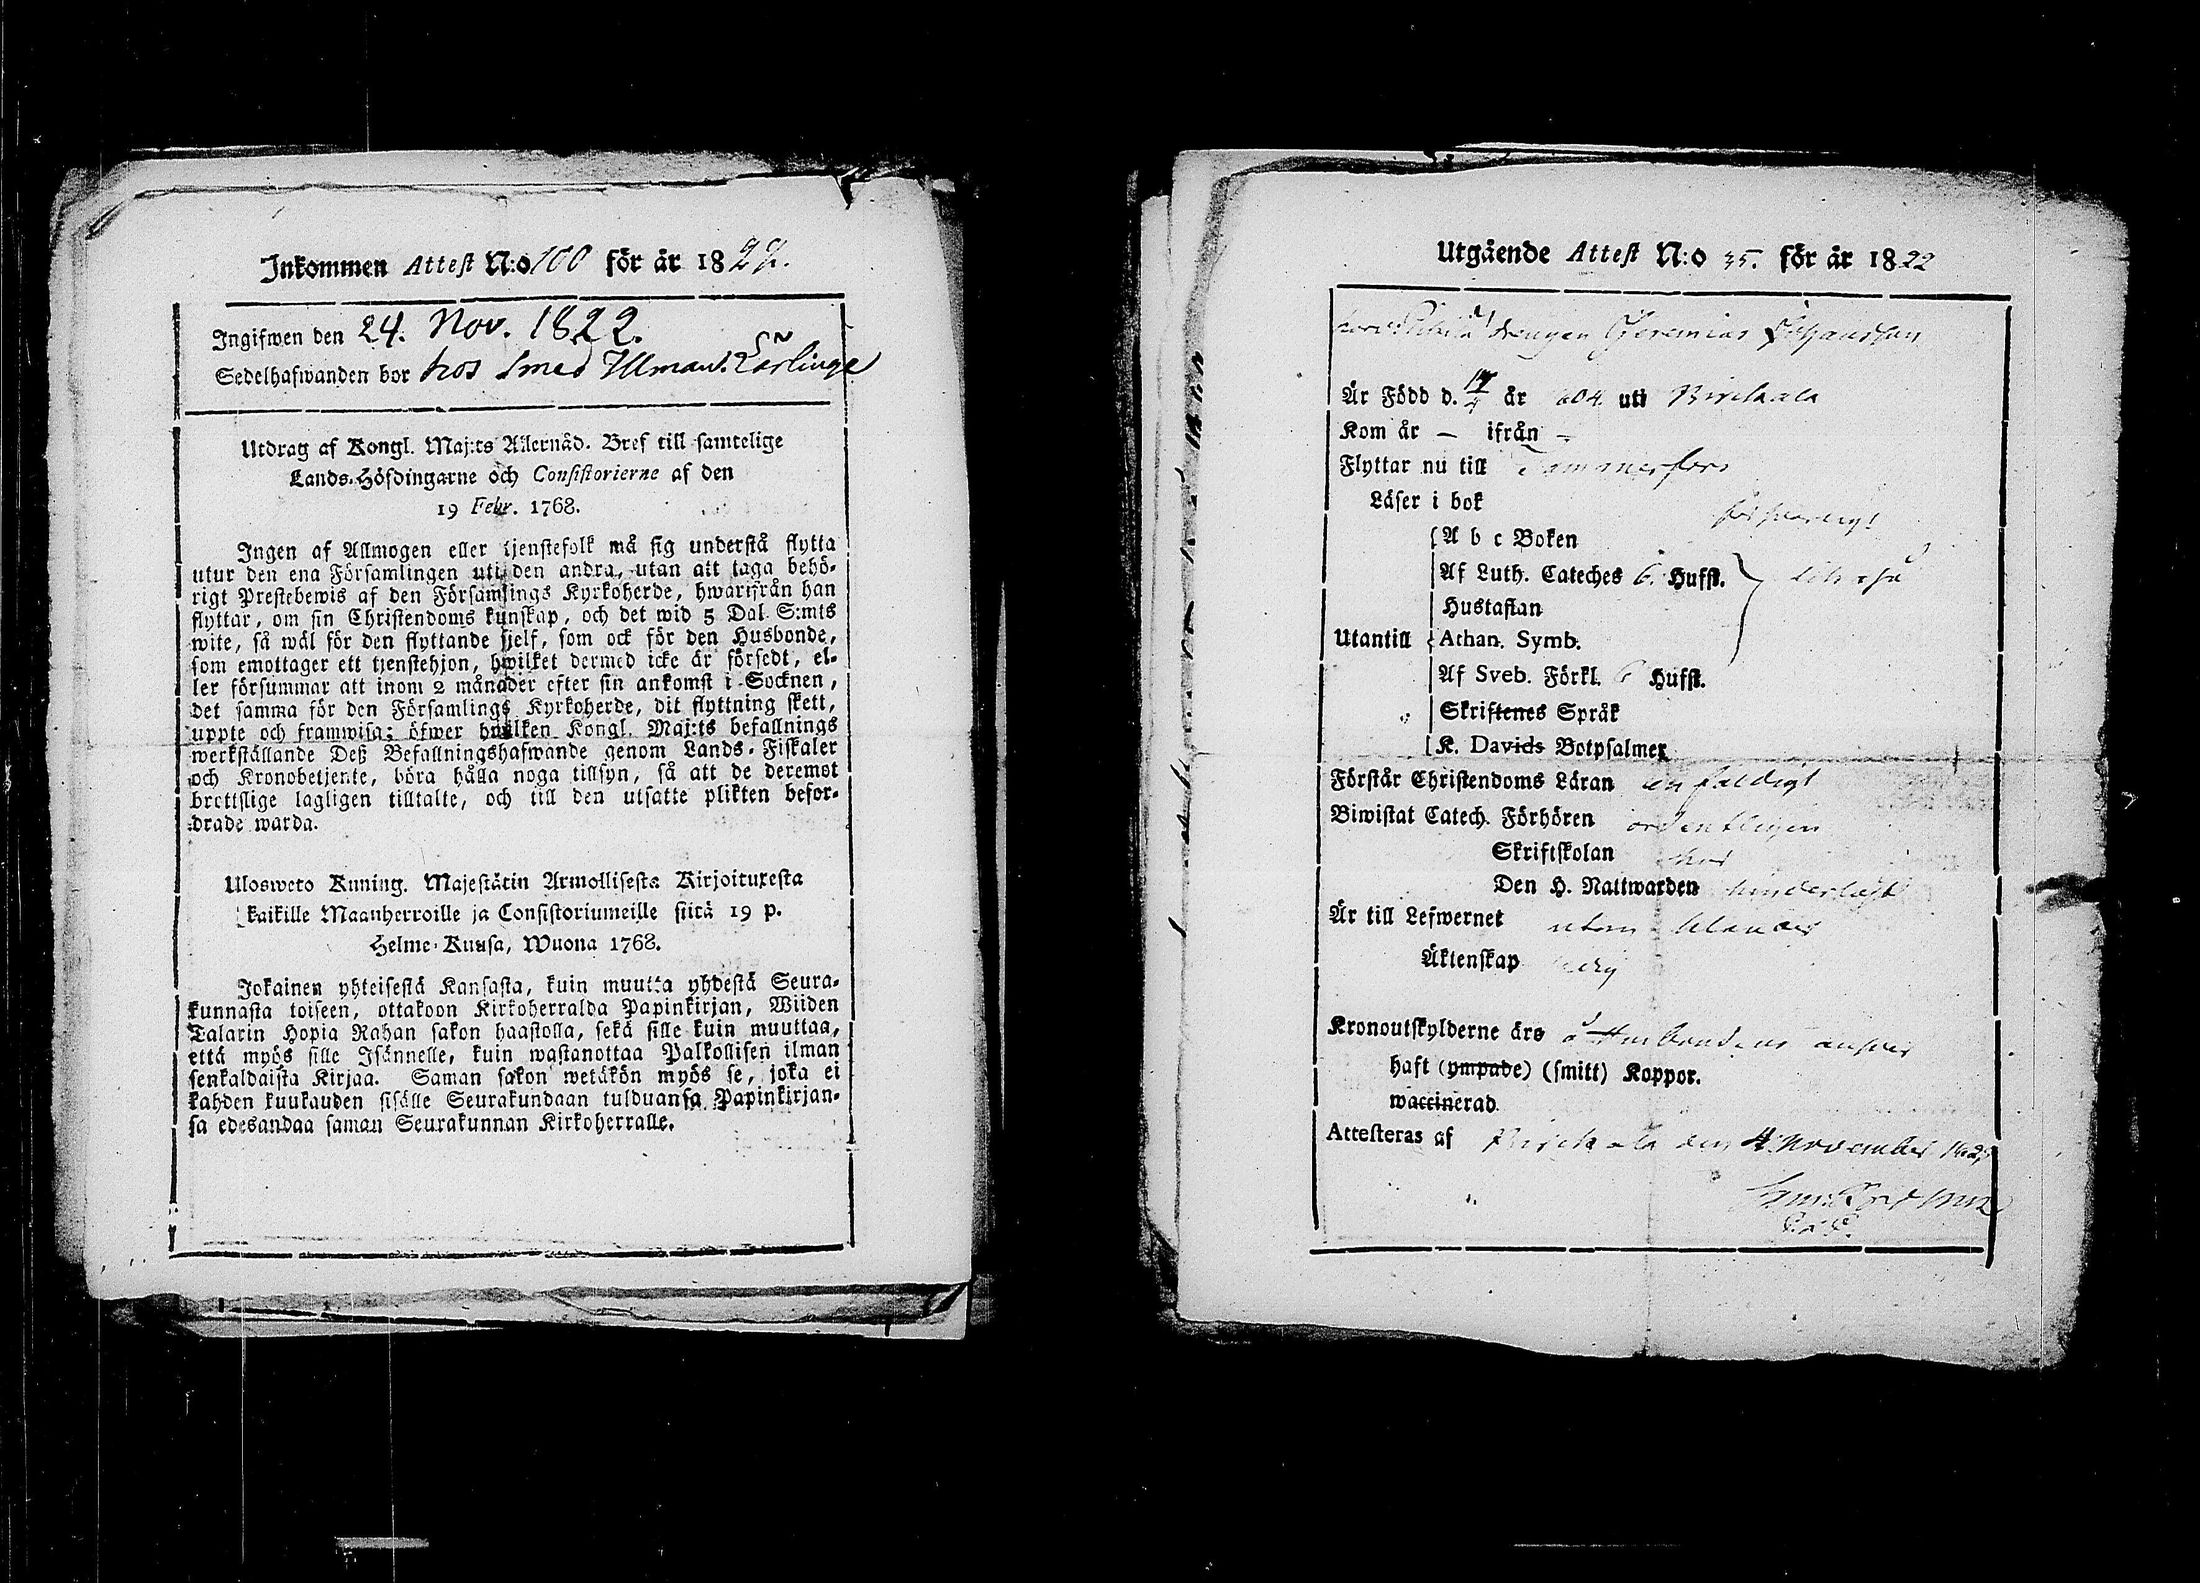 Inkommen Attest N:o 100 för år 1822.
Ingifwen den 24. Nov. 1822.
Sedelhafwanden bor hos Smed Ullman. Lärlinge
Utdrag af Kongl. Maj:ts Allernåd. Bref till samtelige
Lands-Höfdingarne och Consistorierne af den
19 Febr. 1768.
Ingen af Allmogen eller tjenstefolk må sig understå flytta
utur den ena Församlingen uti den andra, utan att taga behö-
rigt Prestebewis af den Församlings Kyrkoherde, hwarifrån han
flyttar, om sin Christendoms kunskap, och det wid 5 Dal. S:mts
wite, så wäl för den flyttande sjelf, som ock för den Husbonde,
som emottager ett tjenstehjon, hwilket dermed icke är försedt, el-
ler försummar att inom 2 månader efter sin ankomst i Socknen,
det samma för den Församlings Kyrkoherde, dit flyttning skett,
uppte och framwisa; öfwer hwilken Kongl. Maj:ts befallnings
werkställande Deß Befallningshafwande genom Lands-Fiskaler
och Kronobetjente, böra hålla noga tillsyn, så att de deremot
brottslige lagligen tilltalte, och till den utsatte plikten befor-
drade warda.
Ulosweto Kuning. Majestätin Armollisesta Kirjoituxesta
kaikille Maanherroille ja Consistoriumeille siitä 19 p.
Helme-Kuusa, Wuona 1768.
Jokainen yhteisestä Kansasta, kuin muutta yhdestä Seura-
kunnasta toiseen, ottakoon Kirkoherralda Papinkirjan, Wiiden
Talarin Hopia Rahan sakon haastolla, sekä sille kuin muuttaa,
että myös sille Isännelle, kuin wastanottaa Palkollisen ilman
senkaldaista Kirjaa. Saman sakon wetäkön myös se, joka ei
kahden kuukauden sisälle Seurakundaan tulduansa Papinkirjan-
sa edesandaa saman Seurakunnan Kirkoherralle.
Utgående Attest N:o 35. för år 1822
drengen Jeremias Johansson
Är Född d. 17/4 år 804. uti Birckala
Kom år — ifrån —
Flyttar nu till Tammerfors
Läser i bok försvarligt
A b c Boken
Af Luth. Cateches 6. Hufst.
Hustaflan
Utantill Athan. Symb.
Af Sveb. Förkl. 6 Hufst.
Skriftenes Språk
K. Davids Botpsalmer
Förstår Christendoms Läran enfaldigt
Biwistat Catech. Förhören ordentligen
Skriftskolan
Den H. Nattwarden
Är till Lefwernet utan klander
Äktenskap ledig
Kronoutskylderne äro å Husbondens answar
haft (ympade) (smitt) Koppor.
waccinerad
Attesteras af Birckala den 4 November 1822